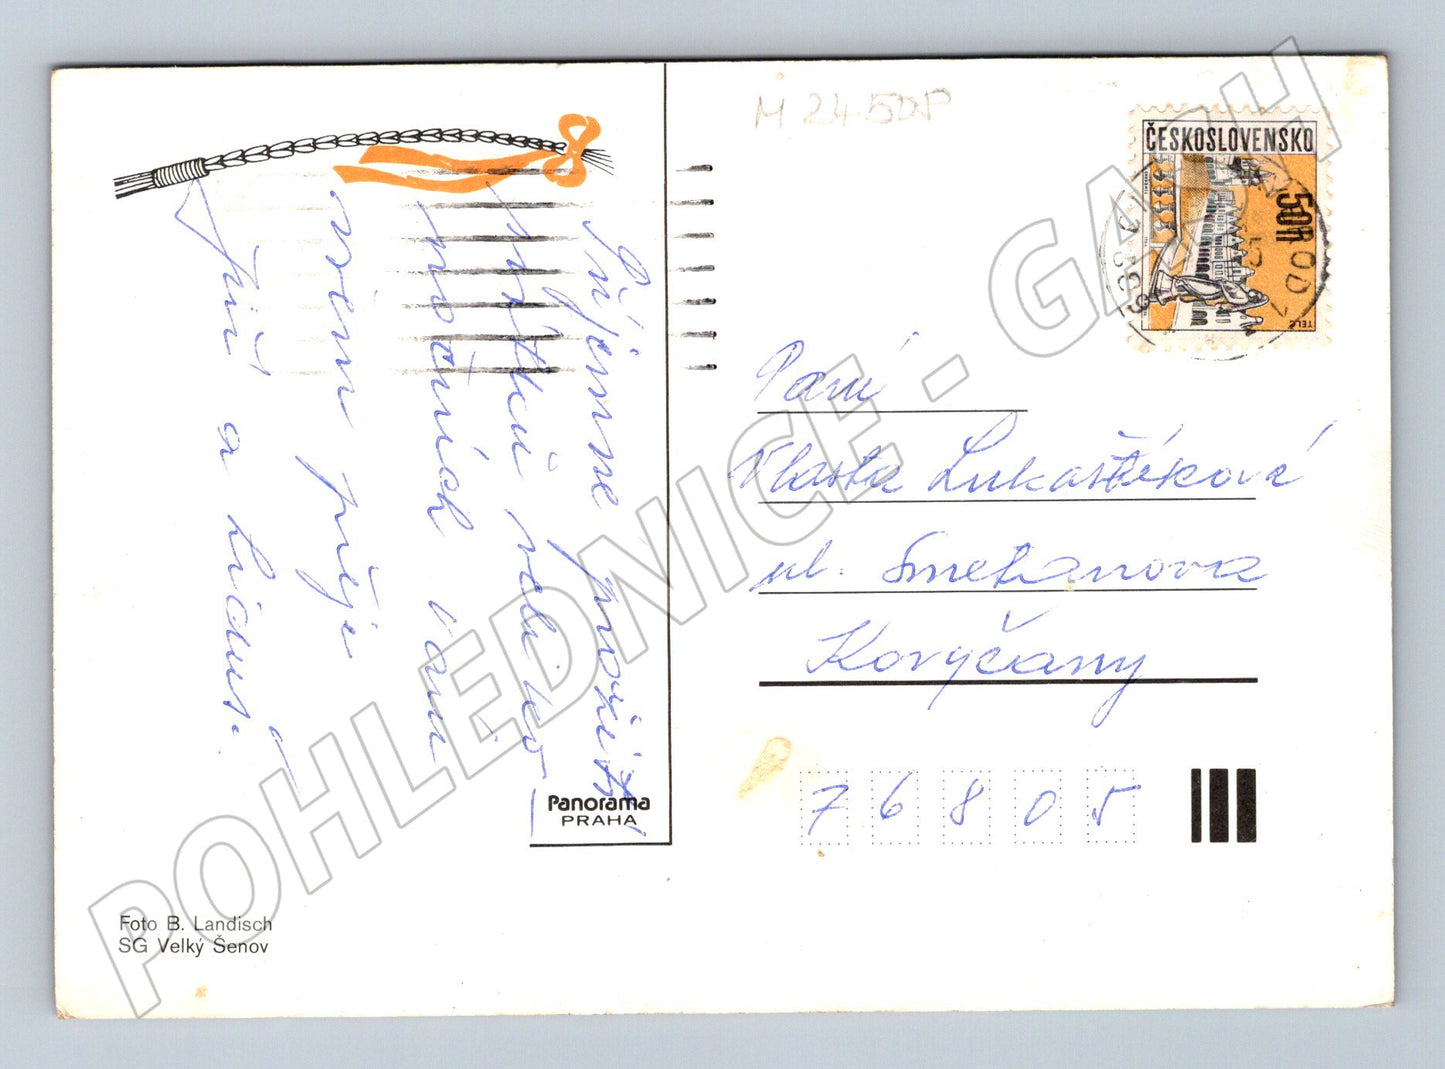 M 2450P
ČESKOSLOVENSKO
50h
TELČ
Příjemné prožití
svátků veliko-
nočních vám
všem přeje
Jiří a Liduš.
Paní
Vlasta Lukaštíková
ul. Smetanova
Koryčany
76805
Panorama
PRAHA
Foto B. Landisch
SG Velký Šenov
POHLEDNICE - GASH